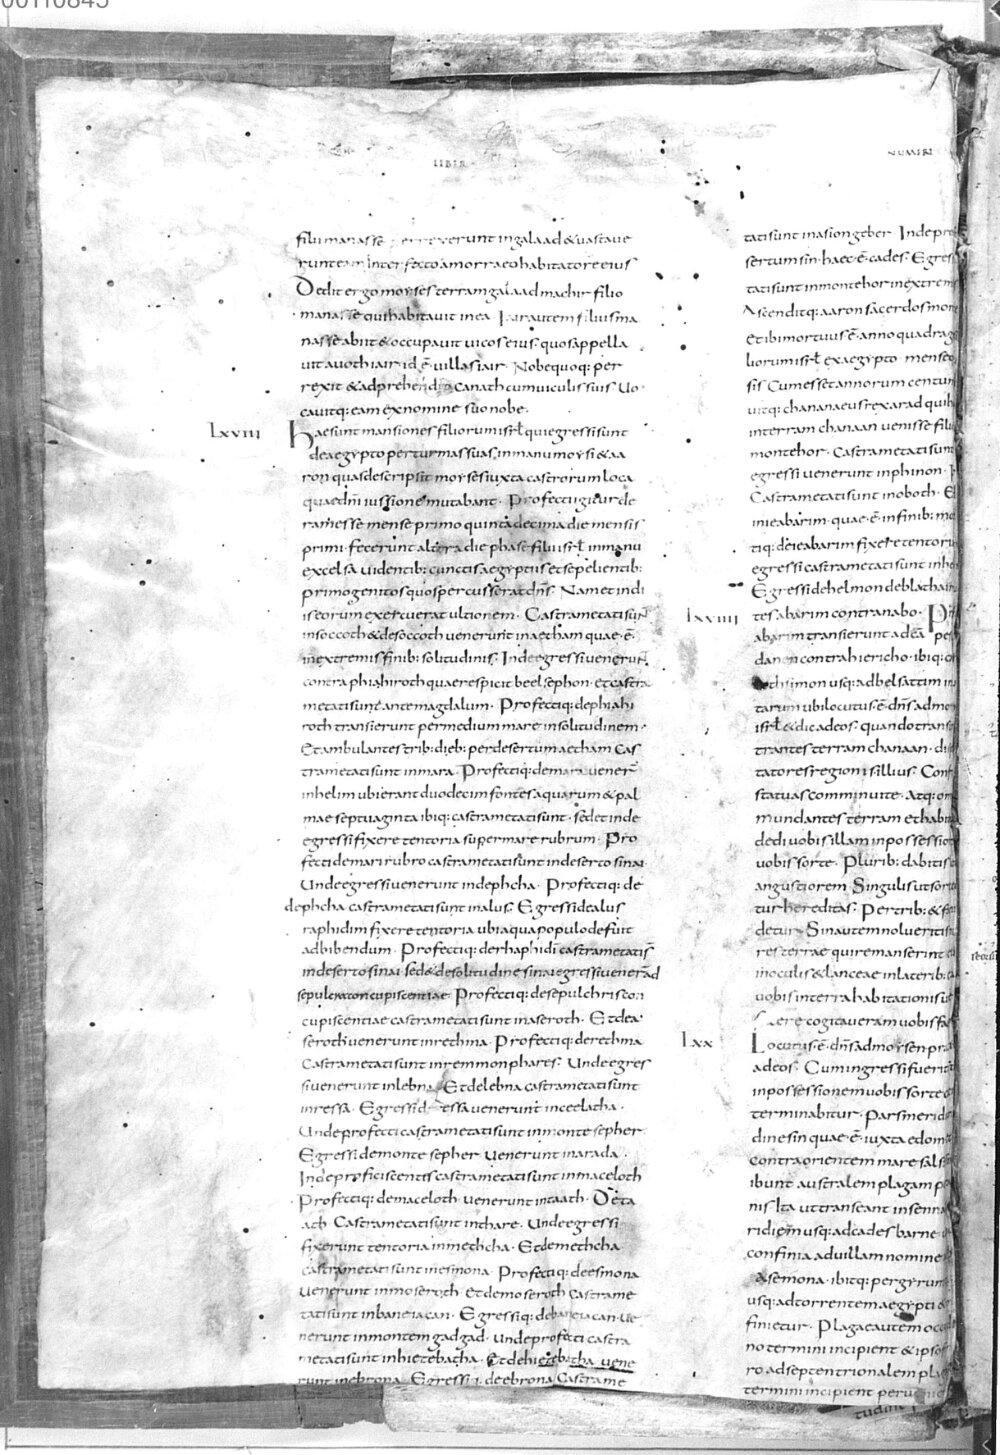 00110845
LIBER
NUMERI
filii manasse perrexerunt in galaad & vastave
runt eam Inter fecto amorraeo habitatore eius
Dedit ergo moyses terram galaad machir filio
manasse qui habitavit in ea. Iair autem filius ma
nasse abiit & occupavit vicos eius. quos appella
vit avoth iair id ē villas iair. Nobe quoq: per
rexit & adprehendit canath cum viculis suis Vo
cavitq: eam ex nomine suo nobe.
Lxviii
Haesunt mansiones filiorum isrl qui egressi sunt
de aegypto per turmas suas in manu moysi & aa
ron quas descripsit moyses iuxta castrorum loca
quae dni iussione mutabant. Profecti igitur de
ramesse mense primo quinta decima die mensis
primi. fecerunt altera die phase filii isrl in manu
excelsa videntib: cunctis aegyptiis et sepelientib:
primogenitos quos percusserat dns. Nam et in di
is eorum exercuerat ultionem. Castrametati sunt
in soccoth & de soccoth venerunt in aetham quae ē
in extremis finib: solitudinis. Inde egressi venerunt
contra phiahiroth quae respicit beelsephon. et castra
metati sunt ante magdalum. Profectiq: de phiahi
roth transierunt per medium mare in solitudinem.
Et ambulantes trib: dieb: per desertum aetham Cas
trametati sunt in mara. Profectiq: de mara vener
in helim ubi erant duodecim fontes aquarum & pal
mae septuaginta ibiq: castrametati sunt. sed et inde
egressi fixere tentoria super mare rubrum. Pro
fecti de mari rubro castrametati sunt in deserto sinai
Unde egressi venerunt in dephcha. Profectiq: de
dephcha castrametati sunt in alus. Egressi de alus
raphidim fixere tentoria ubi aqua populo defuit
ad bibendum. Profectiq: de rhaphidi castrametatis
in deserto sinai. sed & de solitudine sinai egressi vener ad
sepulcra concupiscentiae. Profectiq: de sepulchris con
cupiscentiae castrametati sunt in aseroth. Et de a
seroth venerunt in rethma. Profectiq: de rethma
Castrametati sunt in remmonphares. Unde egres
si venerunt in lebna. Et de lebna castrametati sunt
in ressa. Egressi de ressa venerunt in ceelatha.
Unde profecti castrametati sunt in monte sepher
Egressi de monte sepher venerunt in arada.
Inde proficiscentes castrametati sunt in maceloth
Profectiq: de maceloth. venerunt in taath. De ta
ath Castrametati sunt in thare. Unde egressi
fixerunt tentoria in methcha. Et de methcha
castrametati sunt in esmona. Profectiq: de esmona
venerunt in moseroth. et de moseroth castrame
tati sunt in baneiacan. Egressiq: de baneiacan ve
nerunt in montem gadgad. Unde profecti castra
metati sunt in hietebatha. Et de hietebatha vene
runt in ebrona. Egressi de ebrona Castrame
tati sunt in asiongeber. Inde pro
sertum sin. haec ē cades. Egres
tati sunt in monte hor in extrem
Ascenditq: aaron sacerdos mon
et ibi mortuus ē anno quadrag
liorum isrl ex aegypto. mense
sis Cum esset annorum centum
vitq: chananaeus rex arad qui h
in terram chanaan venisse fili
monte hor. Castrametati sunt
egressi venerunt in phinon.
Castrametati sunt in oboth. E
in ieabarim. quae ē in finib: mo
tiq: de ieabarim fixere tentori
egressi castrametati sunt in he
Egressi de helmondeblathai
Lxviiii
tes abarim contra nabo. Pr
abarim transierunt ad ea pes
danen contra hiericho. ibiq: c
bethsimon usq: ad belsattim in
tarum ubi locutus ē dns ad mo
isrl & dic ad eos. quando trans
trantes terram chanaan. dis
tatores regionis illius. Con
statuas comminuite. Atq: om
mundantes terram et habi
dedi vobis illam in possessio
vobis sorte. Plurib: dabitis
angustiorem. Singulis ut sor
tur hereditas. Per trib: & fa
detur. Sin autem nolueritis
res terrae qui remanserint
in oculis & lanceae in laterib:
vobis in terra habitationis ve
cogitaveram vobis fa
Lxx
Locutus ē dns ad moysen pr
ad eos. Cum ingressi fueri
in possessionem vobis sorte
terminabitur. Pars merid
dine sin quae ē iuxta edom
contra orientem mare sals
ibunt australem plagam p
nis. Ita ut transeant in senna
ridiem usq: ad cades barne.
confinia ad villam nomine
asemona. ibitq: per gyrum
usq: ad torrentem aegypti
finietur. Plaga autem occ
no termini incipient & ipso
ro ad septentrionalem pla
termini incipient